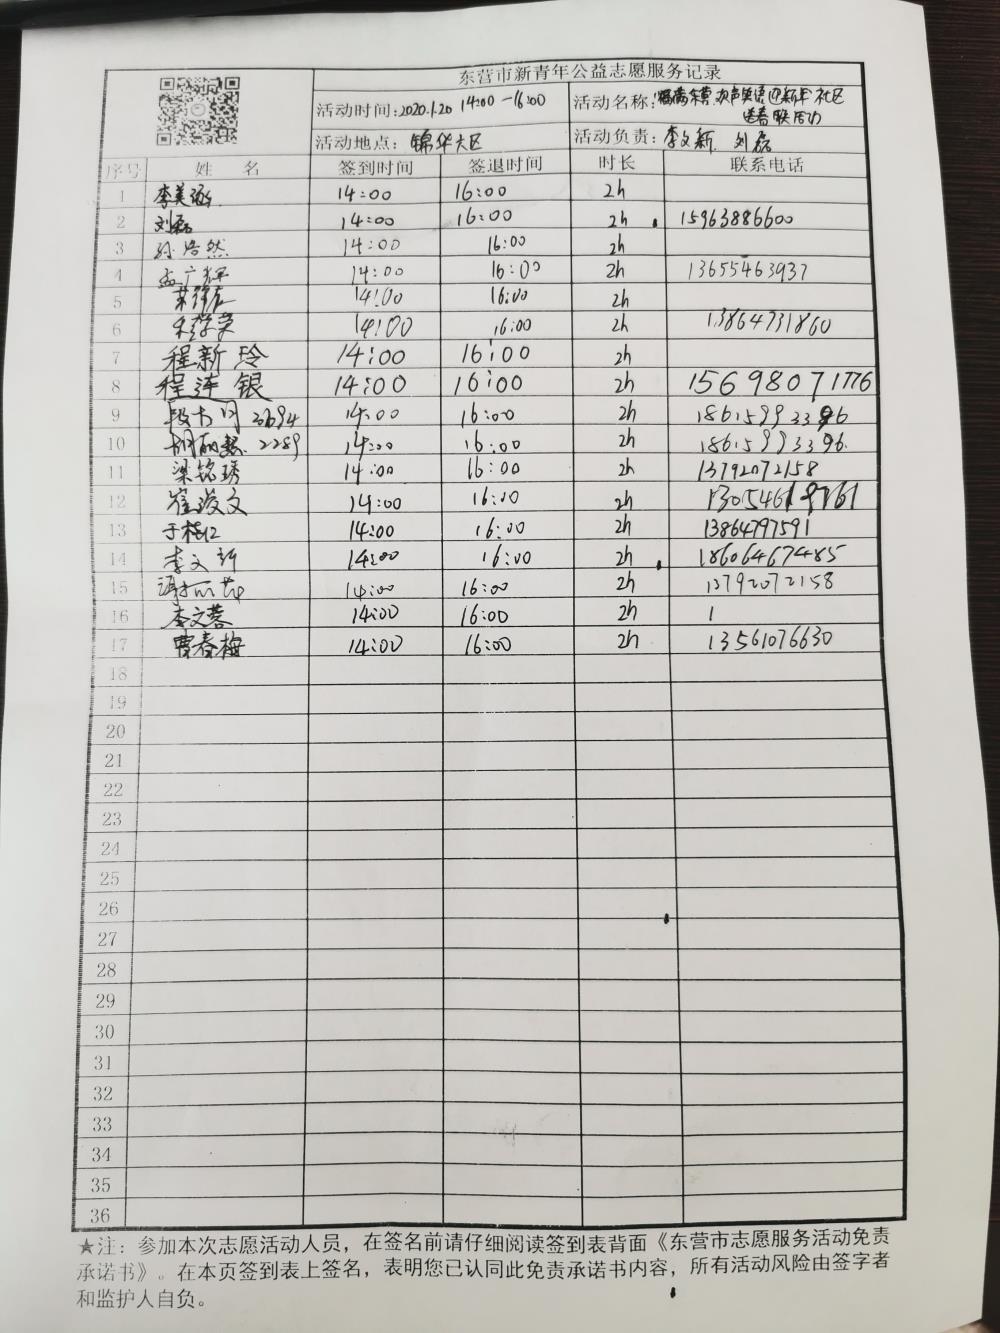 东营市新青年公益志愿服务记录
活动时间:2020.1.20 14:00-16:00 活动名称: 欢声笑语迎新年 社区
送春联活动
活动地点: 锦华大区 活动负责: 李文新 刘磊
序号 姓名 签到时间 签退时间 时长 联系电话
1 李美 14:00 16:00 2h
2 刘磊 14:00 16:00 2h 15963886600
3 孙浩然 14:00 16:00 2h
4 孟广辉 14:00 16:00 2h 13655463937
5 14:00 16:00 2h
6 14:00 16:00 2h 13864731860
7 程新玲 14:00 16:00 2h
8 程连银 14:00 16:00 2h 15698071776
9 14:00 16:00 2h 18615993396
10 2289 14:00 16:00 2h 18615993396
11 梁铭琇 14:00 16:00 2h 13792072158
12 崔俊文 14:00 16:00 2h
13 于桂江 14:00 16:00 2h 13864797591
14 李文新 14:00 16:00 2h 18606467485
15 14:00 16:00 2h 13792072158
16 李文蓉 14:00 16:00 2h 1
17 曹春梅 14:00 16:00 2h 13561076630
18
19
20
21
22
23
24
25
26
27
28
29
30
31
32
33
34
35
36
★注：参加本次志愿活动人员，在签名前请仔细阅读签到表背面《东营市志愿服务活动免责
承诺书》。在本页签到表上签名，表明您已认同此免责承诺书内容，所有活动风险由签字者
和监护人自负。